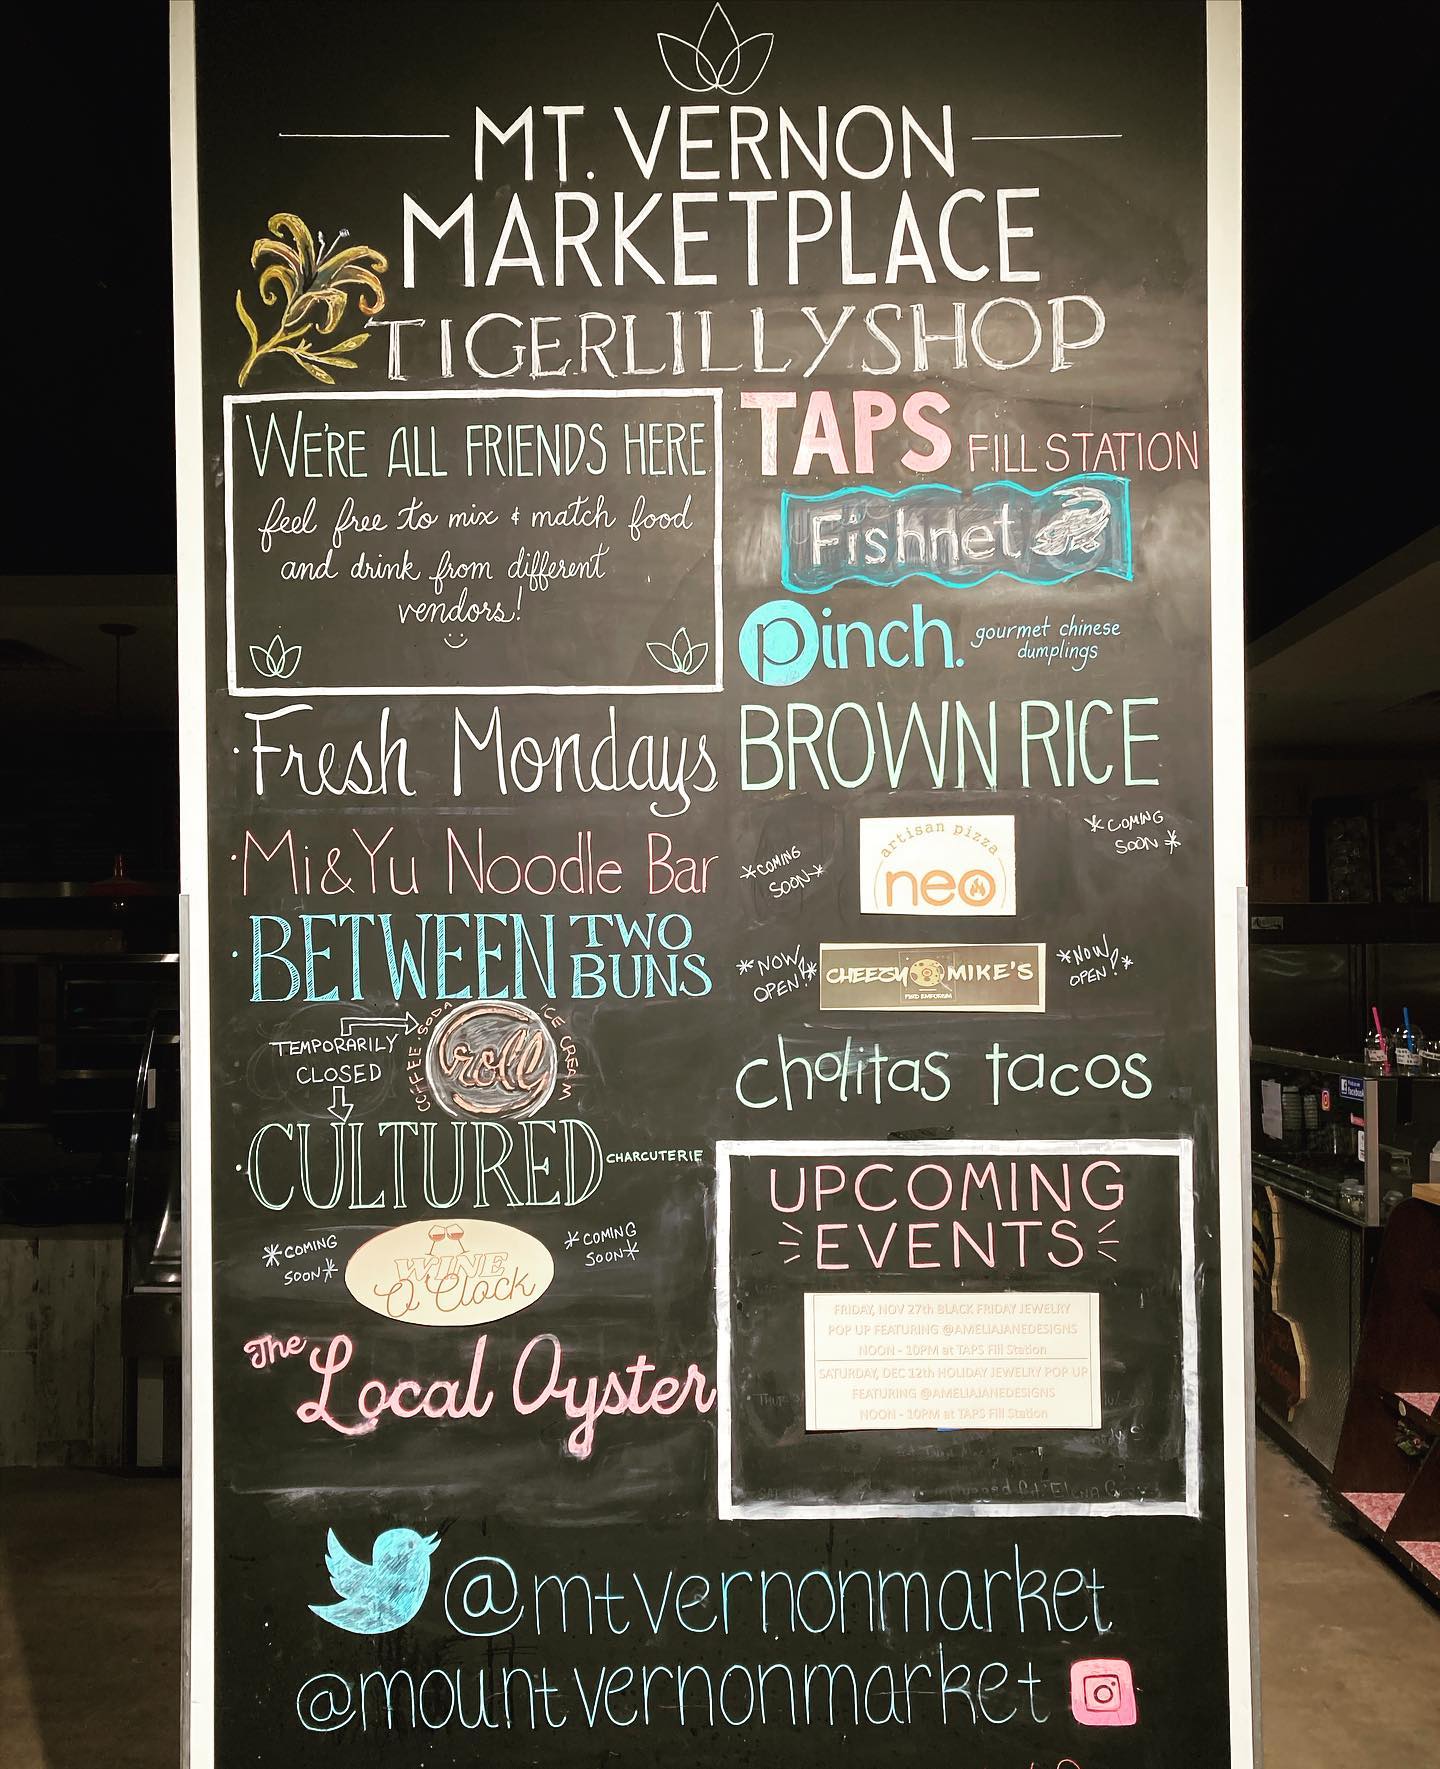 MT. VERNON
MARKETPLACE
TIGERLILLYSHOP
WE'RE ALL FRIENDS HERE
feel free to mix & match food
and drink from different
vendors!
Fresh Mondays
Mi&Yu Noodle Bar
BETWEEN TWO BUNS
TEMPORARILY
CLOSED
COFFEE. SODA ICE CREAM
roll
CULTURED CHARCUTERIE
*COMING SOON*
WINE
O'Clock
*COMING SOON*
The Local Oyster
TAPS FILL STATION
Fishnet
pinch. gourmet chinese
dumplings
BROWN RICE
*COMING SOON*
artisan pizza
neo
*COMING SOON*
*NOW OPEN!*
CHEEZY MIKE'S
*NOW OPEN!*
cholitas tacos
UPCOMING
EVENTS
FRIDAY, NOV 27th BLACK FRIDAY JEWELRY
POP UP FEATURING @AMELIAJANEDESIGNS
NOON - 10PM at TAPS Fill Station
SATURDAY, DEC 12th HOLIDAY JEWELRY POP UP
FEATURING @AMELIAJANEDESIGNS
NOON - 10PM at TAPS Fill Station
@mtvernonmarket
@mountvernonmarket